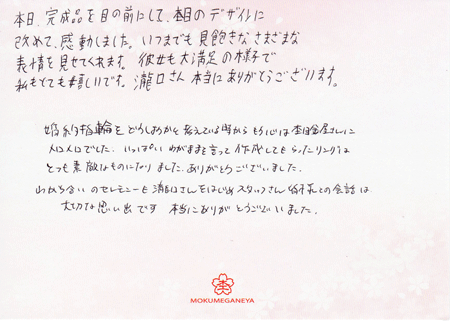 本日、完成品を目の前にして、木目のデザインに
改めて、感動しました。いつまでも見飽きなさまざまな
表情を見せてくれます。彼女も大満足の様子で
私もとても嬉しいです。瀧口さん本当にありがとうございます。
婚約指輪をどうしようかと考えている時から もう心は杢目金屋さんに
メロメロでした。いっぱいわがままを言って作成してもらったリングは
とっても素敵なものになりました。ありがとうございました。
わかちあいのセレモニーも瀧口さんをはじめスタッフさん との会話は
大切な思い出です 本当にありがとうございました。
MOKUMEGANEYA